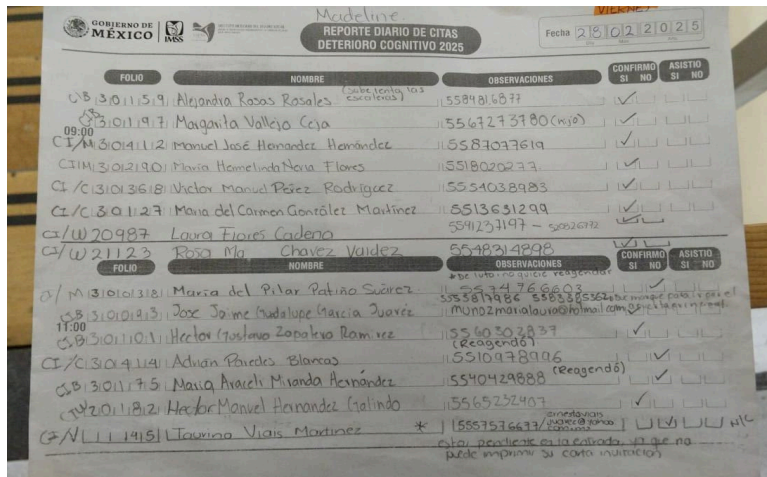 Madeline
VIERNES
GOBIERNO DE MÉXICO IMSS
REPORTE DIARIO DE CITAS
DETERIORO COGNITIVO 2025
Fecha 28 02 2025
FOLIO NOMBRE OBSERVACIONES CONFIRMO SI NO ASISTIO SI NO
CI/B 301159 Alejandra Rosas Rosales (sube lenta las escaleras) ✓
301197 Margarita Vallejo Ceja 5567273780 (hijo) ✓
09:00
CI/M 304112 Manuel José Hernandez Hernández 5587037619 ✓
CI/M 302190 Maria Hermelinda Neria Flores ✓
CI/C 301368 Victor Manuel Pérez Rodríguez 5554038983 ✓
CI/C 30127 Maria del Carmen González Martínez 5513631299 ✓
CI/W 20987 Laura Flores Cadena 5591237197 - ✓
CI/W 21123 Rosa Ma Chavez Valdez 5548314898 ✓
FOLIO NOMBRE OBSERVACIONES CONFIRMO SI NO ASISTIO SI NO
*De luto - no quiere reagendar
M 301038 María del Pilar Patiño Suárez 5574766603 ✓
B Jose Jaime Guadalupe García Juarez
11:00
B 301101 Hector Gustavo Zapatero Ramirez 5560302837 ✓
(Reagendó)
CI/C 304144 Adrián Paredes Blancas 5510978996 ✓
B 301175 María Araceli Miranda Hernández 5540429888 (Reagendó) ✓
201182 Hector Manuel Hernandez Galindo 5565252907 ✓
1451 Taurino Viais Martinez * 5557576677/ ✓ N/C
estar pendiente en la entrada, ya que no
puede imprimir su carta invitación